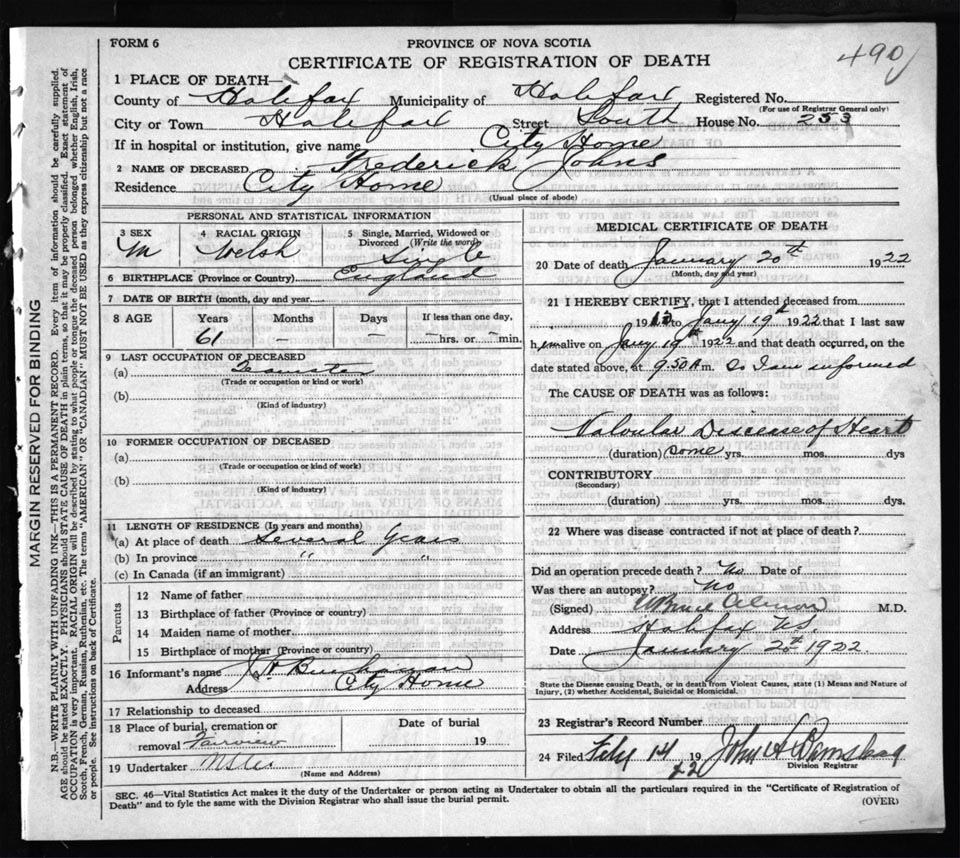 FORM 6
PROVINCE OF NOVA SCOTIA
CERTIFICATE OF REGISTRATION OF DEATH
490
1 PLACE OF DEATH—
County of Halifax Municipality of Halifax Registered No.
(For use of Registrar General only)
City or Town Halifax Street South House No. 253
If in hospital or institution, give name City Home
2 NAME OF DECEASED Frederick Johns
Residence City Home
(Usual place of abode)
PERSONAL AND STATISTICAL INFORMATION
3 SEX
M
4 RACIAL ORIGIN
Welsh
5 Single, Married, Widowed or Divorced (Write the word)
Single
6 BIRTHPLACE (Province or Country) England
7 DATE OF BIRTH (month, day and year)
8 AGE Years Months Days If less than one day,
61 – – hrs. or min.
9 LAST OCCUPATION OF DECEASED
(a) Teamster
(Trade or occupation or kind or work)
(b)
(Kind of industry)
10 FORMER OCCUPATION OF DECEASED
(a)
(Trade or occupation or kind of work)
(b)
(Kind of industry)
11 LENGTH OF RESIDENCE (In years and months)
(a) At place of death Several years
(b) In province " "
(c) In Canada (if an immigrant)
Parents
12 Name of father
13 Birthplace of father (Province or country)
14 Maiden name of mother
15 Birthplace of mother (Province or country)
16 Informant's name J H Buchanan
Address City Home
17 Relationship to deceased
18 Place of burial, cremation or Date of burial
removal Fairview 19
19 Undertaker
(Name and Address)
MEDICAL CERTIFICATE OF DEATH
20 Date of death January 20th 1922
(Month, day and year)
21 I HEREBY CERTIFY, that I attended deceased from
19 to Jany 19th 1922 that I last saw
him alive on Jany 19th 1922 and that death occurred, on the
date stated above, at 9.50 A m. So I am informed
The CAUSE OF DEATH was as follows:
Valvular Disease of Heart
(duration) Some yrs. mos. dys
CONTRIBUTORY
(Secondary)
(duration) yrs. mos. dys.
22 Where was disease contracted if not at place of death?
Did an operation precede death? No Date of
Was there an autopsy? No
(Signed) W Bruce Almon M.D.
Address Halifax N.S.
Date January 20th 1922
State the Disease causing Death, or in death from Violent Causes, state (1) Means and Nature of
Injury, (2) whether Accidental, Suicidal or Homicidal.
23 Registrar's Record Number
24 Filed Feby 14 19 22 John A
Division Registrar
SEC. 46—Vital Statistics Act makes it the duty of the Undertaker or person acting as Undertaker to obtain all the particulars required in the "Certificate of Registration of
Death" and to fyle the same with the Division Registrar who shall issue the burial permit. (OVER)
MARGIN RESERVED FOR BINDING
N.B.—WRITE PLAINLY WITH UNFADING INK—THIS IS A PERMANENT RECORD. Every item of information should be carefully supplied.
AGE should be stated EXACTLY. PHYSICIANS should STATE CAUSE OF DEATH in plain terms, so that it may be properly classified. Exact statement of
OCCUPATION is very important. RACIAL ORIGIN will be described by stating to what people or tongue the deceased person belonged whether English, Irish,
Scotch, French, German, Russian, Ruthenian, etc. The terms "AMERICAN" OR "CANADIAN" MUST NOT BE USED as they express citizenship but not a race
or people. See instructions on back of Certificate.